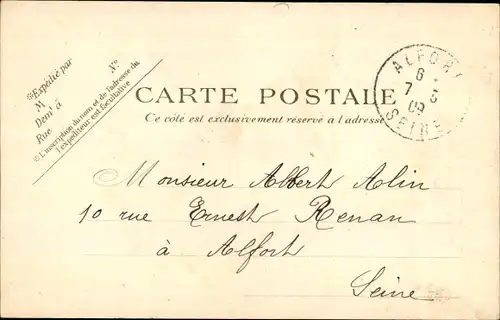 Expédié par
M
Demt à
Rue
No
(1) L'inscription du nom et de l'adresse du
l'expéditeur est facultative
CARTE POSTALE
Ce côté est exclusivement réservé à l'adresse
ALFORT
6
7 5
09
SEINE
Monsieur Albert Alin
10 rue Ernest Renan
à Alfort
Seine